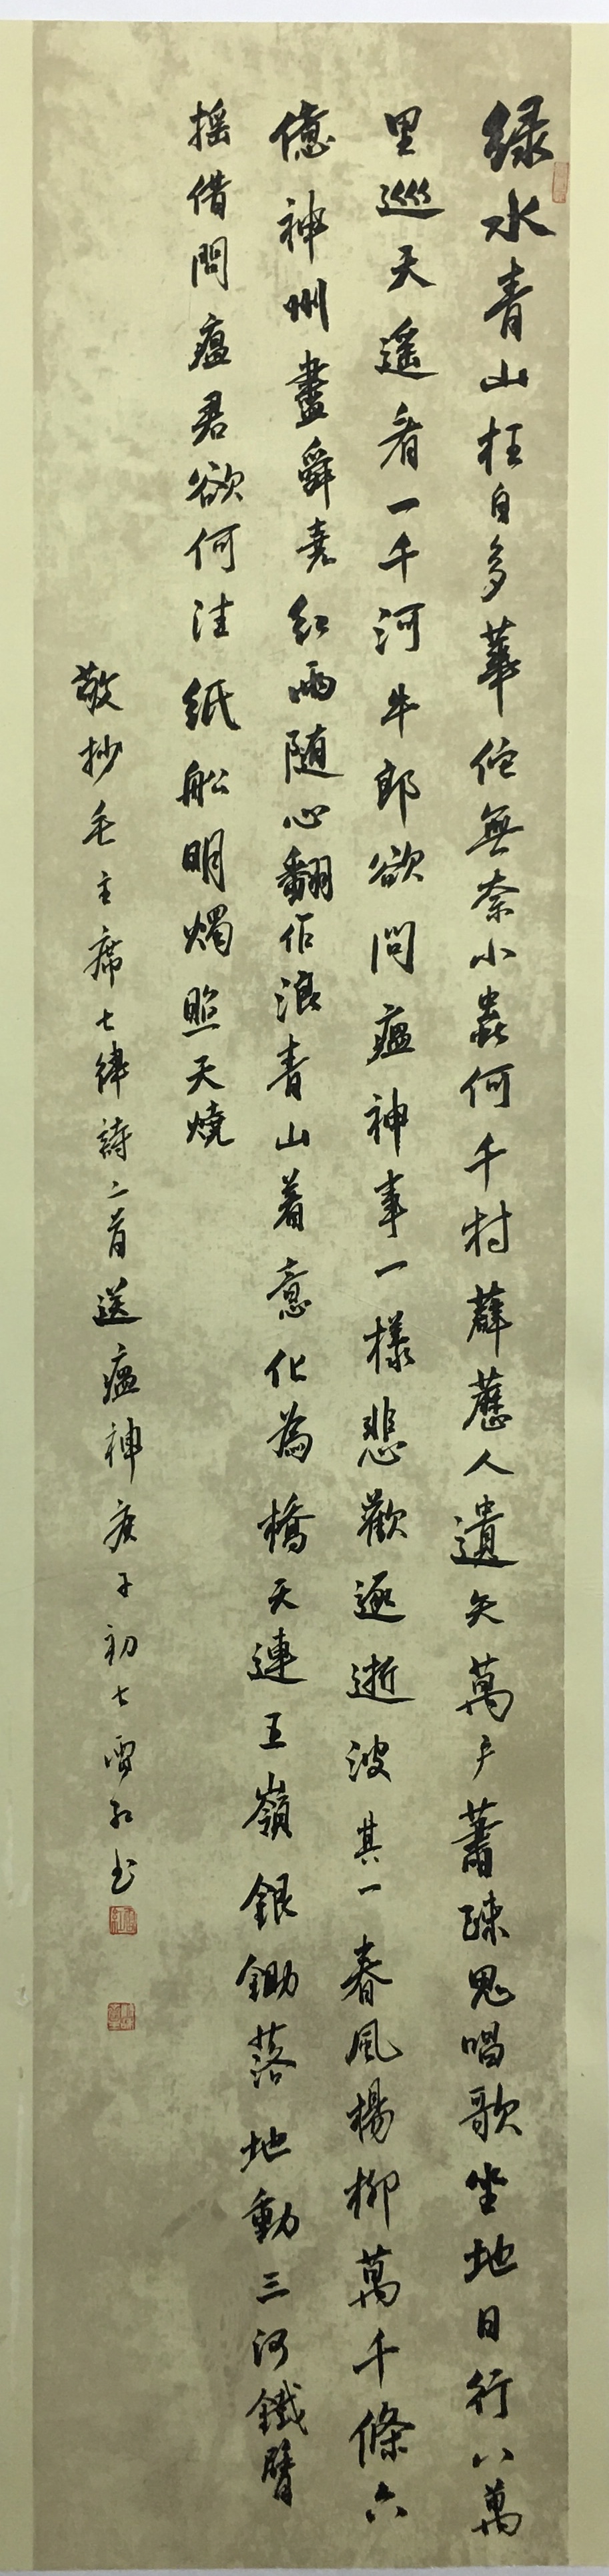 绿水青山枉自多華佗無奈小蟲何千村薜荔人遺矢萬户蕭疎鬼唱歌坐地日行八萬
里巡天遥看一千河牛郎欲問瘟神事一樣悲歡逐逝波其一春風楊柳萬千條六
億神州盡舜堯紅雨随心翻作浪青山着意化為橋天連五嶺銀鋤落地動三河鐵臂
摇借問瘟君欲何往紙船明燭照天燒
敬抄毛主席七律詩二首送瘟神庚子初七雪紅书